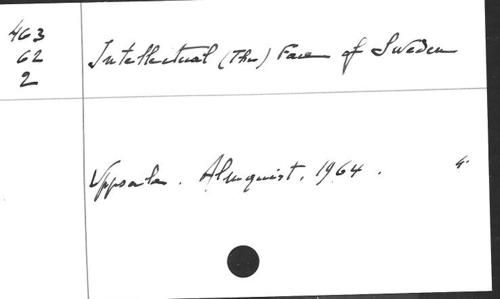 463
62
2
Intellectual (The) Face of Sweden
Uppsala. Almquist, 1964.
4°